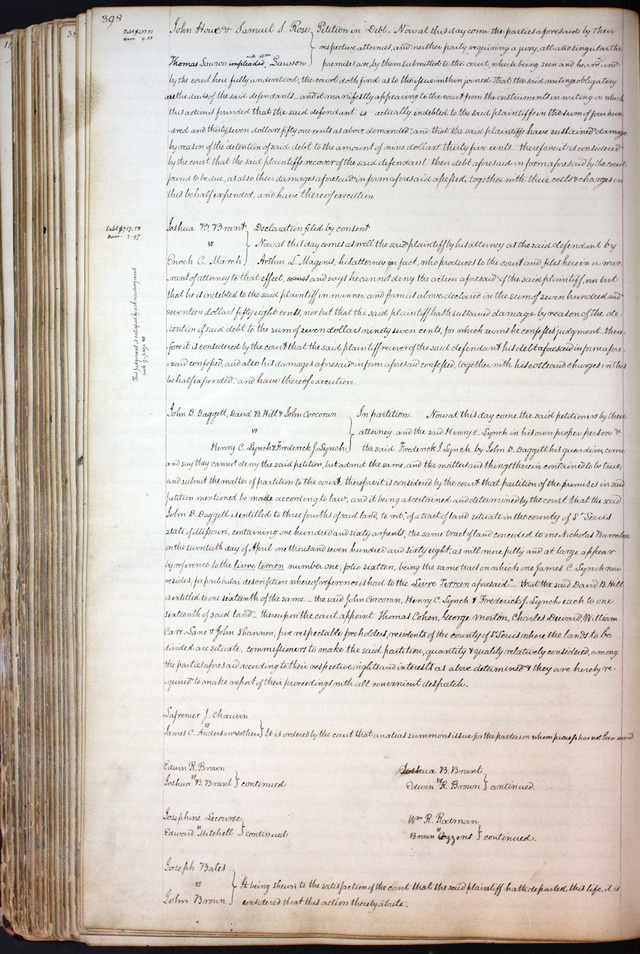 398
Debt $517.51
Dam: 9.35
John Howe & Samuel S. Rose, Petition in Debt. Now at this day come the parties aforesaid by their
vs
respective attornies, and neither party requiring a jury, all and singular the
Thomas Lawson impleaded with Wm Lawson
premises are by them submitted to the court, which being seen and heard and
by the court here fully understood, the court doth find as to the issue within joined that the said writing obligatory
are the deeds of the said defendants and it manifestly appearing to the court from the instruments in writing on which
this action is founded that the said defendant is actually indebted to the said plaintiffs in the sum of five hun
dred and thirty seven dollars fifty one cents as above demanded, and that the said plaintiffs have sustained damage
by reason of the detention of said debt to the amount of nine dollars thirty five cents. therefore it is considered
by the court that the said plaintiffs recover of the said defendant their debt aforesaid in form aforesaid by the court
found to be due, as also their damages aforesaid in form aforesaid assessed, together with their costs & charges in
this behalf expended, and have thereof execution.
Debt $717.58
Dam: 7.97
This judgment is satisfied by
Joshua B. Brant
vs
Enoch C. March
Declaration filed by consent
Now at this day comes as well the said plaintiff by his attorney as the said defendant by
Arthur L. Magenis, his attorney in fact, who produces to the court and files herein a war-
rant of attorney to that effect, comes and says he cannot deny the action aforesaid of the said plaintiff, nor but
that he is indebted to the said plaintiff in manner and form as above declared in the sum of seven hundred and
seventeen dollars fifty eight cents, nor but that the said plaintiff hath sustained damage by reason of the de-
tention of said debt to the sum of seven dollars ninety seven cents, for which sums he confesses judgment. there-
fore it is considered by the court that the said plaintiff recover of the said defendant his debt aforesaid in form afore-
said confessed, and also his damages aforesaid in form aforesaid confessed, together with his costs and charges in this
behalf expended, and have thereof execution.
John D. Daggett, David B. Hill & John Corcoran
vs
Henry C. Lynch & Frederick J. Lynch
In partition. Now at this day come the said petitioners by their
attorney, and the said Henry C. Lynch in his own proper person &
the said Frederick J. Lynch by John D. Daggett his guardian, come
and say they cannot deny the said petition, but admit the same, and the matters and things therein contained to be true,
and submit the matter of partition to the court. therefore it is considered by the court that partition of the premises in said
petition mentioned be made according to law, and it being ascertained and determined by the court that the said
John D. Daggett is entitled to three fourths of said land, to wit, of a tract of land situate in the county of St Louis
state of Missouri, containing one hundred and sixty arpents, the same tract of land conceded to one Nicholas
on the twentieth day of April one thousand seven hundred and sixty eight, as will more fully and at large appear
by reference to the livre terrien number one, folio sixteen, being the same tract on which one James C. Lynch now
resides, for particular description whereof reference is had to the Livre Terrien aforesaid – that the said David B. Hill
is entitled to one sixteenth of the same – the said John Corcoran, Henry C. Lynch & Frederick J. Lynch each to one
sixteenth of said land – thereupon the court appoint Thomas Cohen, George Morton, Charles Deward, William
Carr Lane & John Shannon, five respectable freeholders, residents of the county of St Louis where the lands to be
divided are situate, commissioners to make the said partition, quantity & quality relatively considered, among
the parties aforesaid according to their respective rights and interests as above determined & they are hereby re-
quired to make report of their proceedings with all convenient despatch.
Lafrenier J. Chauvin
vs
James C. Anderson & others } It is ordered by the court that an alias summons issue for the parties on whom process has not been served
Edwin R. Brown
vs
Joshua B. Brant } continued
Joshua B. Brant
vs
Edwin R. Brown } continued.
Josephine Lecourse
vs
Edward Mitchell } continued
Wm R. Rodman
vs
Brain Cozzens } continued.
Joseph Bates
vs
John Brown
It being shewn to the satisfaction of the court that the said plaintiff hath departed this life, it is
considered that this action thereby abate.